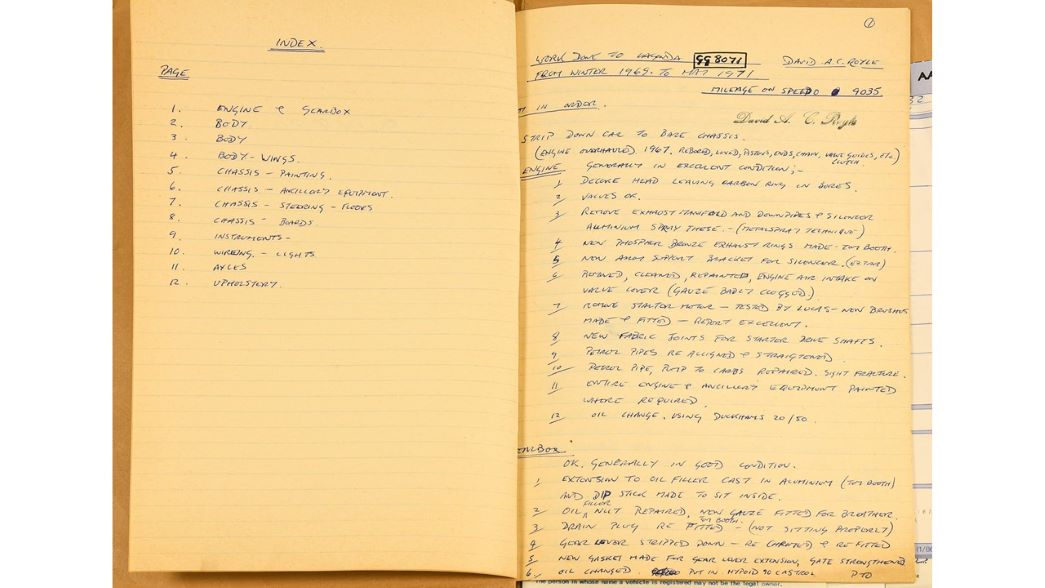 INDEX.
PAGE
1. ENGINE & GEARBOX
2. BODY
3. BODY
4. BODY - WINGS.
5. CHASSIS - PAINTING.
6. CHASSIS - ANCILLORY EQUIPMENT.
7. CHASSIS - STEERING - FLOORS
8. CHASSIS - BOARDS.
9. INSTRUMENTS -
10. WIREING. - LIGHTS.
11. AXLES
12. UPHOLSTORY.
1
WORK DONE TO LAGONDA GG 8071 DAVID A.C. ROYLE
FROM WINTER 1969. TO MAY 1971
MILEAGE ON SPEEDO 9035
IN ORDER.
David A. C. Royle
STRIP DOWN CAR TO BARE CHASSIS.
(ENGINE OVERHAULED. 1967. REBORED, PISTONS, ENDS, CHAIN, VALVE GUIDES, ETC)
CLUTCH.
ENGINE GENERALLY IN EXCELLENT CONDITION;-
1 DECOKE HEAD LEAVING CARBON RING IN BORES.
2 VALVES OK.
3 REMOVE EXHAUST MANIFOLD AND DOWNPIPES & SILENCER
ALUMINIUM SPRAY THESE. - (METALSPRAY TECHNIQUE)
4 NEW PHOSPHER BRONZE EXHAUST RINGS MADE - TOM BOOTH.
5 NEW ALLOY SUPPORT BRACKET FOR SILENCER. (EXTRA)
6 REMOVED, CLEANED, REPAINTED, ENGINE AIR INTAKE ON
VALVE COVER (GAUZE BADLY CLOGGED)
7 REMOVE STARTOR MOTOR - TESTED BY LUCAS - NEW BRUSHES
MADE & FITTED - REPORT EXCELLENT.
8 NEW FABRIC JOINTS FOR STARTOR DRIVE SHAFTS.
9 PETROL PIPES RE ALLIGNED & STRAIGTENED.
10 PETROL PIPE, PUMP TO CARBS REPAIRED. SIGHT FRACTURE.
11 ENTIRE ENGINE & ANCILLORY EQUIPMENT PAINTED
WHERE REQUIRED.
12 OIL CHANGE. USING DUCKHAMS 20/50.
OK. GENERALLY IN GOOD CONDITION.
1 EXTENSION TO OIL FILLER CAST IN ALUMINIUM (TOM BOOTH)
AND DIP STICK MADE TO SIT INSIDE.
FILLER
2 OIL NUT REPAIRED, NEW GAUZE FITTED FOR BREATHER.
TOM BOOTH.
3 DRAIN PLUG RE FITTED - (NOT SITTING PROPERLY)
4 GEAR LEVER STRIPPED DOWN - RE CHROMED & RE FITTED
5 NEW GASKET MADE FOR GEAR LEVER EXTENSION, GATE STRENGTHENED
6. OIL CHANGED. PUT IN HYPOID 90 CASTROL PTO
The person in whose name a vehicle is registered may not be the legal owner.